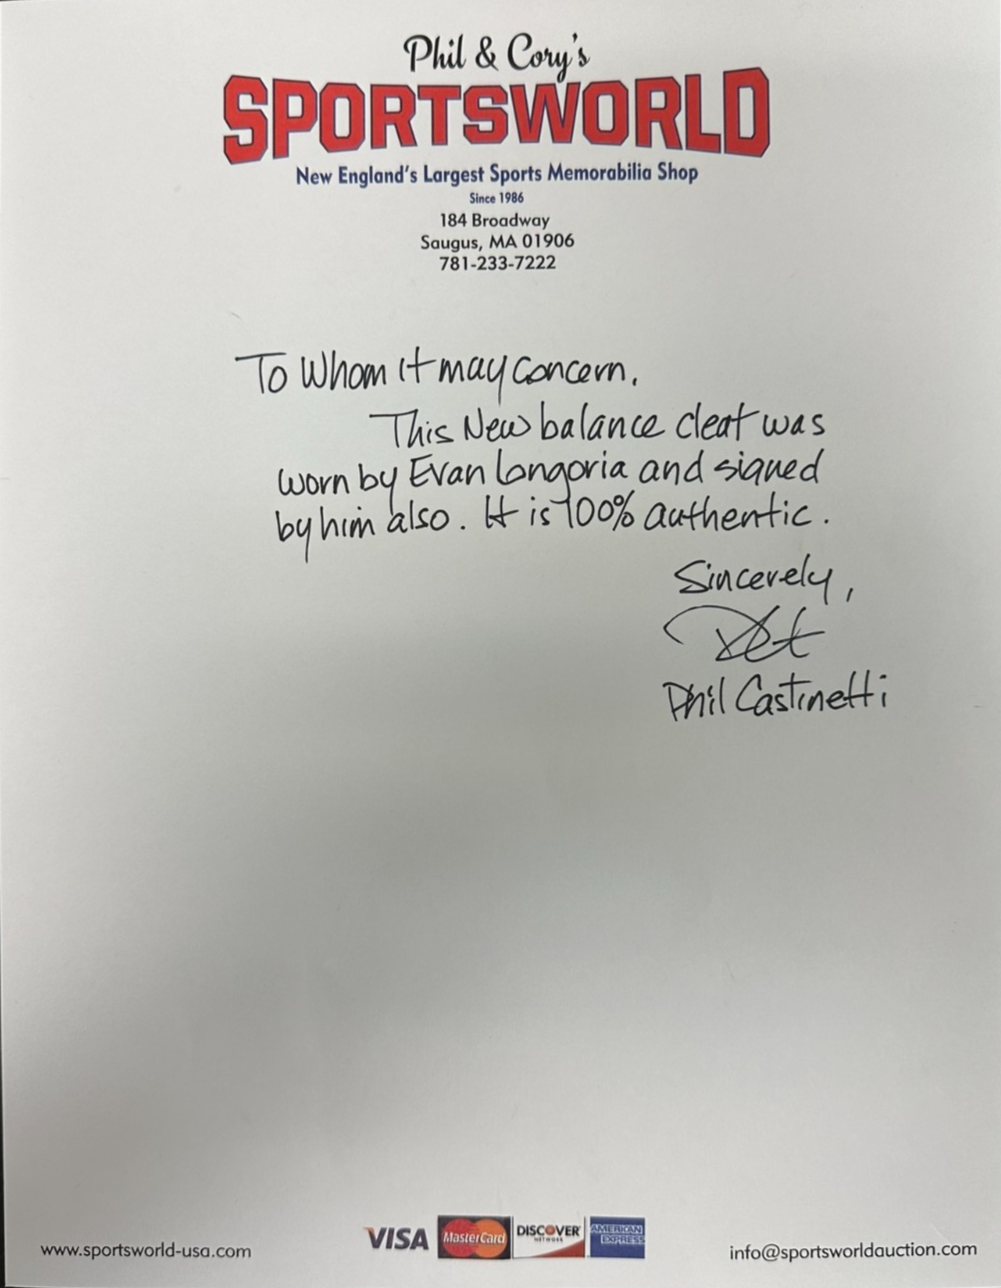 Phil & Cory's
SPORTSWORLD
New England's Largest Sports Memorabilia Shop
Since 1986
184 Broadway
Saugus, MA 01906
781-233-7222
To Whom it may concern.
This New balance cleat was
worn by Evan Longoria and signed
by him also. It is 100% authentic.
Sincerely,
Phil Castinetti
www.sportsworld-usa.com
VISA MasterCard DISCOVER NETWORK AMERICAN EXPRESS
info@sportsworldauction.com